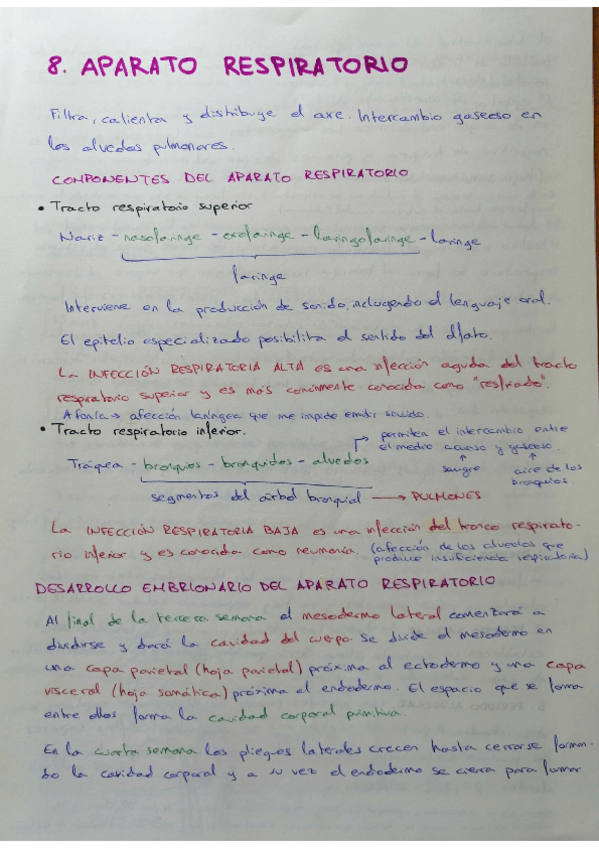 8. APARATO RESPIRATORIO
Filtra, calienta y distribuye el aire. Intercambio gaseoso en
los alveolos pulmonares.
COMPONENTES DEL APARATO RESPIRATORIO
• Tracto respiratorio superior
Nariz - nasofaringe - orofaringe - laringofaringe - laringe
faringe
Interviene en la producción de sonido, incluyendo el lenguaje oral.
El epitelio especializado posibilita el sentido del olfato.
La INFECCIÓN RESPIRATORIA ALTA es una infección aguda del tracto
respiratorio superior y es más comúnmente conocida como "resfriado".
Afonía → afección laríngea que me impide emitir sonido.
• Tracto respiratorio inferior.
→ permiten el intercambio entre
el medio acuoso y gaseoso.
Tráquea - bronquios - bronquiolos - alveolos
sangre
aire de los
bronquios.
segmentos del árbol bronquial → PULMONES
La INFECCIÓN RESPIRATORIA BAJA es una infección del tronco respirato-
rio inferior y es conocida como neumonía. (afección de los alveolos que
produce insuficiencia respiratoria)
DESARROLLO EMBRIONARIO DEL APARATO RESPIRATORIO
Al final de la tercera semana el mesodermo lateral comenzará a
dividirse y dará la cavidad del cuerpo. Se divide el mesodermo en
una capa parietal (hoja parietal) próxima al ectodermo y una capa
visceral (hoja somática) próxima al endodermo. El espacio que se forma
entre ellos forma la cavidad corporal primitiva.
En la cuarta semana los pliegues laterales crecen hasta cerrarse forman-
do la cavidad corporal y a su vez el endodermo se cierra para formar